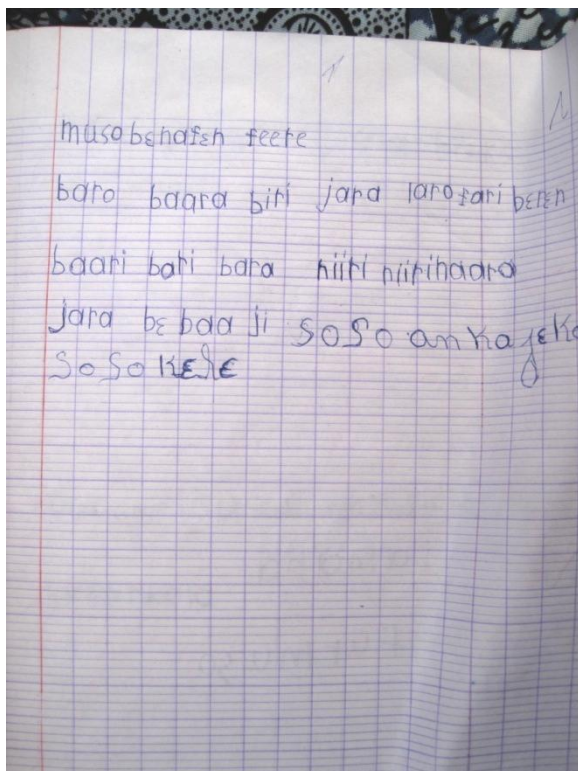 muso bɛ nafɛn feere
baro baara biri jara laro fari berɛn
baari bari bara niiri niirinaara
jara bɛ baa ji soso an ka jɛka
soso kɛlɛ